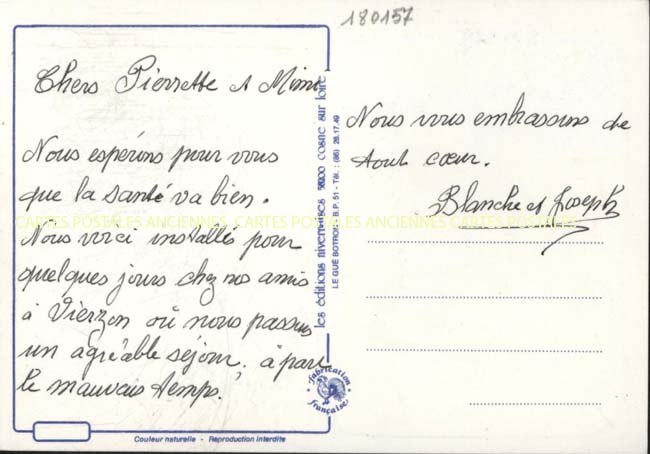 180157
Chers Pierrette et Mimi
Nous espérons pour vous
que la santé va bien.
Nous voici installés pour
quelques jours chez nos amis
à Vierzon où nous passons
un agréable séjour, à part
le mauvais temps.
Nous vous embrassons de
tout cœur.
Blanche et Joseph
CARTES POSTALES ANCIENNES CARTES POSTALES ANCIENNES CARTES POSTALES ANCIENNES
les éditions nivernaises 58200 cosne sur loire
LE GUÉ BOTRON - B.P. 51 - Tél. : (86) 28.17.49
Fabrication
Française
Couleur naturelle - Reproduction interdite